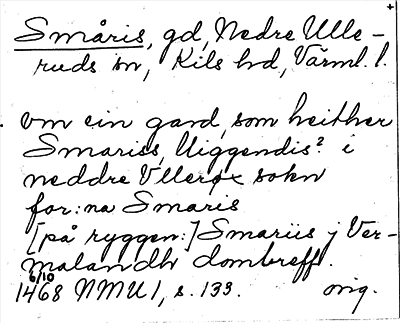 Småris, gd, Nedre Ulle-
ruds sn, Kils hd, Värml. l.
om ein gard, som heither
Smariss, liggendis? i
neddre Vllerø sokn
for:na Smaris
[på ryggen:] Smariis j Ver-
malandh dombreff.
6/10
1468 NMU 1, s. 133. orig.